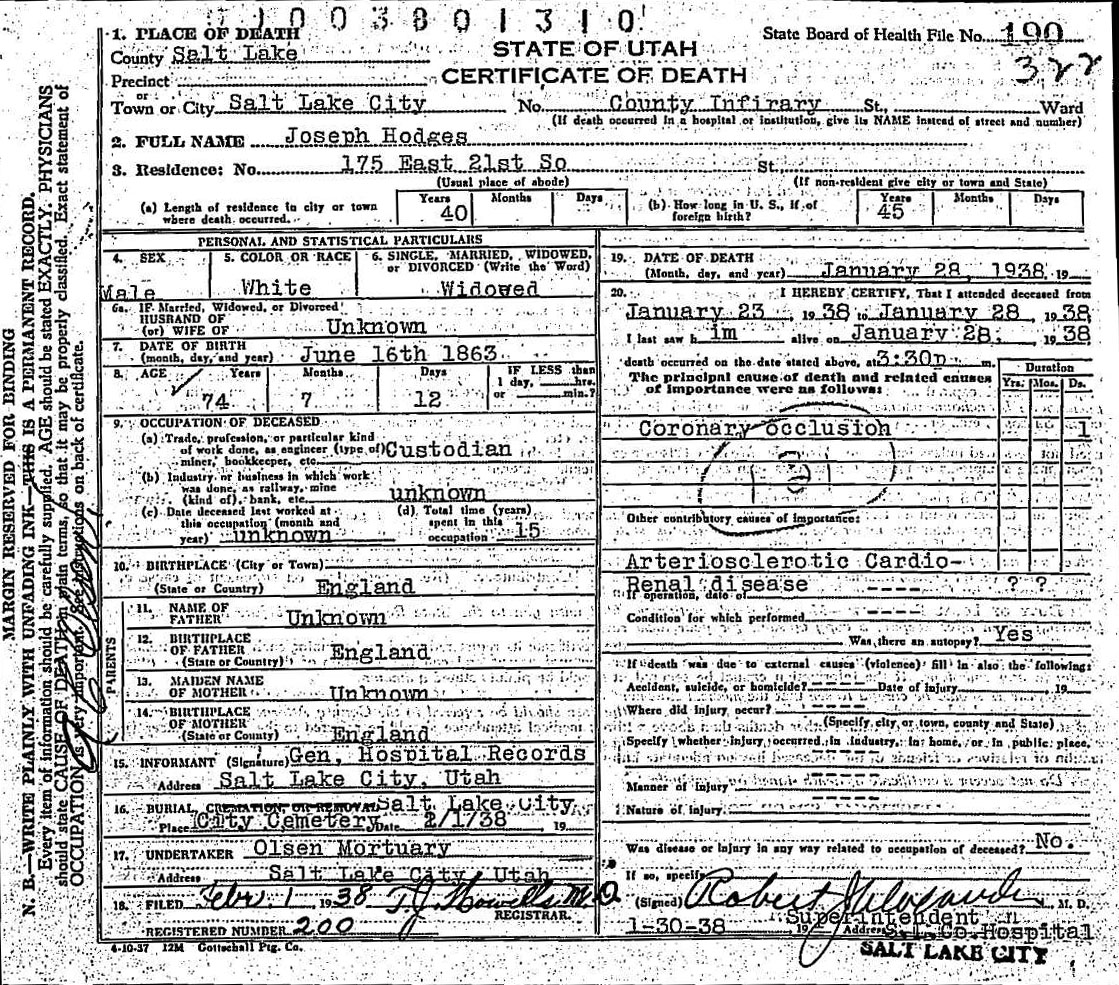 1003801310
1. PLACE OF DEATH
County Salt Lake
Precinct
or
Town or City Salt Lake City No. County Infirary St., Ward
(If death occurred in a hospital or institution, give its NAME instead of street and number)
STATE OF UTAH
CERTIFICATE OF DEATH
State Board of Health File No. 190
322
2. FULL NAME Joseph Hodges
3. Residence: No. 175 East 21st So St.
(Usual place of abode) (If non-resident give city or town and State)
(a) Length of residence in city or town where death occurred. Years 40 Months Days
(b) How long in U. S., if of foreign birth? Years 45 Months Days
PERSONAL AND STATISTICAL PARTICULARS
4. SEX Male
5. COLOR OR RACE White
6. SINGLE, MARRIED, WIDOWED, or DIVORCED (Write the Word) Widowed
6a. IF Married, Widowed, or Divorced
HUSBAND OF
(or) WIFE OF Unknown
7. DATE OF BIRTH
(month, day, and year) June 16th 1863
8. AGE Years 74 Months 7 Days 12 IF LESS than 1 day, hrs. or min.?
9. OCCUPATION OF DECEASED
(a) Trade, profession, or particular kind of work done, as engineer (type of) miner, bookkeeper, etc. Custodian
(b) Industry or business in which work was done, as railway, mine (kind of), bank, etc. unknown
(c) Date deceased last worked at this occupation (month and year) unknown
(d) Total time (years) spent in this occupation 15
10. BIRTHPLACE (City or Town)
(State or Country) England
PARENTS
11. NAME OF FATHER Unknown
12. BIRTHPLACE OF FATHER (State or Country) England
13. MAIDEN NAME OF MOTHER Unknown
14. BIRTHPLACE OF MOTHER (State or Country) England
15. INFORMANT (Signature) Gen, Hospital Records
Address Salt Lake City, Utah
16. BURIAL, CREMATION, OR REMOVAL Salt Lake City
Place City Cemetery Date 2/1/38, 19
17. UNDERTAKER Olsen Mortuary
Address Salt Lake City, Utah
18. FILED Febr. 1 1938 T.J. Howells M.D.
REGISTRAR.
REGISTERED NUMBER 200
4-10-37 12M Gottschall Ptg. Co.
19. DATE OF DEATH
(Month, day, and year) January 28, 1938, 19
20. I HEREBY CERTIFY, That I attended deceased from
January 23 1938 to January 28 1938
I last saw h im alive on January 28, 1938
death occurred on the date stated above, at 3:30p m.
The principal cause of death and related causes of importance were as follows:
Duration
Yrs. Mos. Ds.
Coronary occlusion 1
Other contributory causes of importance:
Arteriosclerotic Cardio-
Renal disease ? ?
If operation, date of ----
Condition for which performed ----
Was there an autopsy? Yes
If death was due to external causes (violence) fill in also the following:
Accident, suicide, or homicide? ---- Date of injury , 19
Where did injury occur? ----
(Specify city or town, county and State)
Specify whether injury occurred in industry, in home, or in public place.
----
Manner of injury ----
Nature of injury ----
Was disease or injury in any way related to occupation of deceased? No.
If so, specify
(Signed) Robert M. D.
Superintendent
1-30-38 19 Address S.L. Co. Hospital
SALT LAKE CITY
MARGIN RESERVED FOR BINDING
N. B.—WRITE PLAINLY WITH UNFADING INK—THIS IS A PERMANENT RECORD.
Every item of information should be carefully supplied. AGE should be stated EXACTLY. PHYSICIANS
should state CAUSE OF DEATH in plain terms, so that it may be properly classified. Exact statement of
OCCUPATION is very important. See instructions on back of certificate.